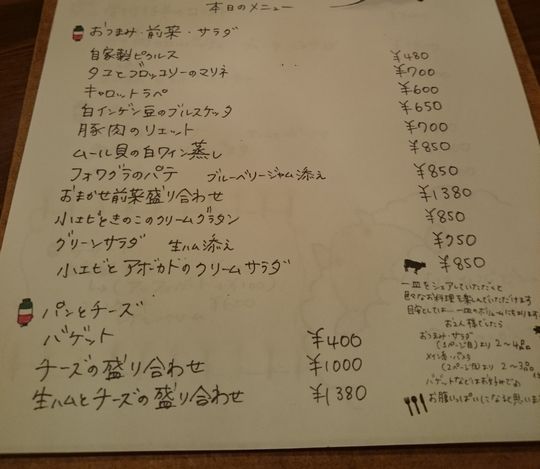 本日のメニュー
おつまみ・前菜・サラダ
自家製ピクルス ¥480
タコとブロッコリーのマリネ ¥700
キャロットラペ ¥600
白インゲン豆のブルスケッタ ¥650
豚肉のリエット ¥700
ムール貝の白ワイン蒸し ¥850
フォワグラのパテ ブルーベリージャム添え ¥850
おまかせ前菜盛り合わせ ¥1380
小エビときのこのクリームグラタン ¥850
グリーンサラダ 生ハム添え ¥750
小エビとアボカドのクリームサラダ ¥850
一皿をシェアしていただくと
色々なお料理を楽しんでいただけます
目安としては一皿のボリュームにもよりますが
お2人様でしたら
おつまみ・サラダ
(1ページ目)より 2～4皿
メイン・パスタ
(2ページ目)より 2～3皿
バゲットなどはお好みで
お腹いっぱいに
パンとチーズ
バゲット ¥400
チーズの盛り合わせ ¥1000
生ハムとチーズの盛り合わせ ¥1380